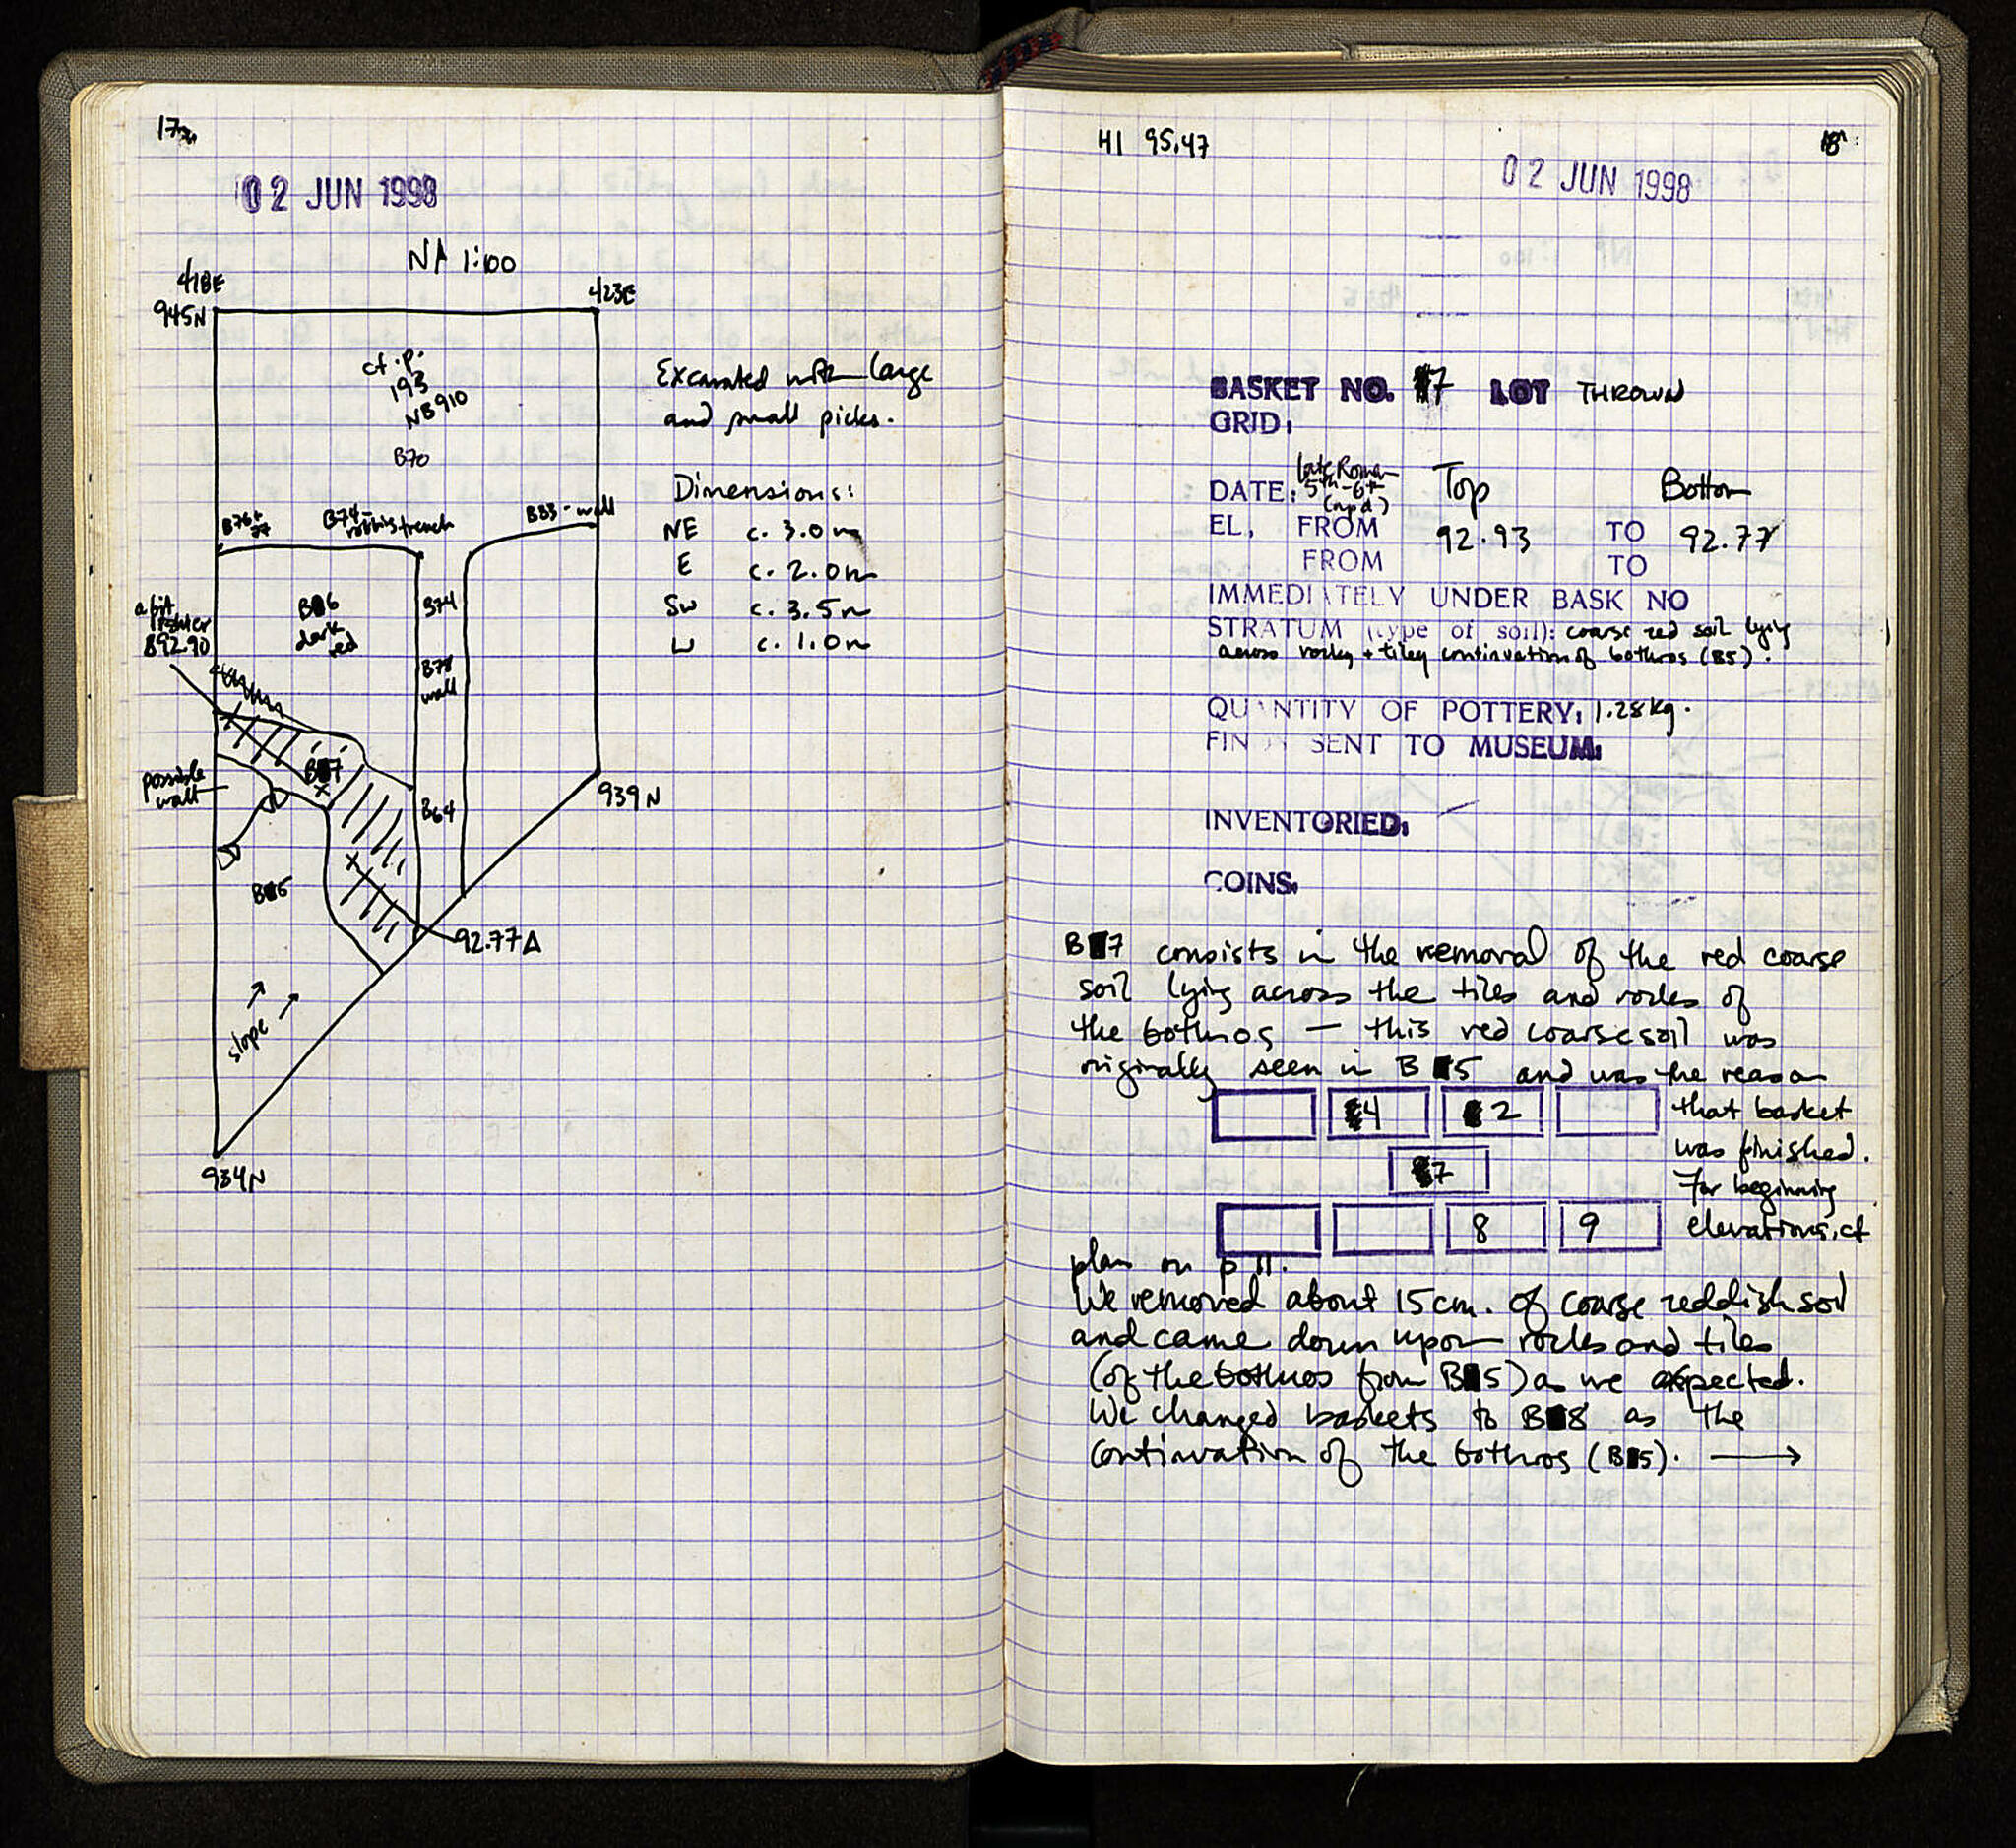 17
02 JUN 1998
N 1:100
418E
945N
423E
cf. p.
193
NB910
B70
Excavated with large
and small picks.
Dimensions:
NE c. 3.0m
E c. 2.0m
SW c. 3.5m
W c. 1.0m
B76+
77
B74-
robbing trench
B83-wall
B6
dark
red
B74
B78
wall
a bit
892.90
possible
wall
B7
B64
939N
B5
92.77Δ
slope
934N
HI 95.47
18
02 JUN 1998
BASKET NO. 7 LOT THROWN
GRID:
DATE: late Roman
5th-6th
Top Bottom
EL. FROM 92.93 TO 92.77
FROM TO
IMMEDIATELY UNDER BASK NO
STRATUM (type of soil): coarse red soil lying
across rocky + tiley continuation of bothros (B5).
QUANTITY OF POTTERY: 1.28kg.
FINDS SENT TO MUSEUM:
INVENTORIED:
COINS:
B7 consists in the removal of the red coarse
soil lying across the tiles and rocks of
the bothros — this red coarse soil was
originally seen in B5 and was the reason
4 2 that basket
was finished.
7 For beginning
8 9 elevations, cf
plan on p 11.
We removed about 15cm. of coarse reddish soil
and came down upon rocks and tiles
(of the bothros from B5) as we expected.
We changed baskets to B8 as the
continuation of the bothros (B5). →